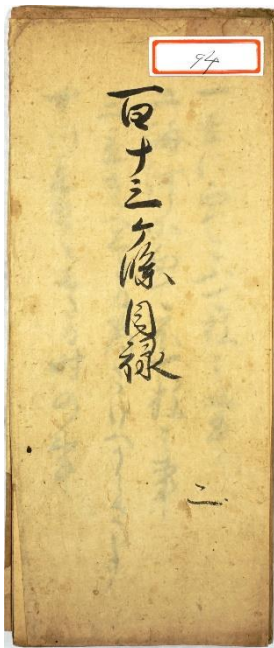 94
百十三ヶ條目録
二